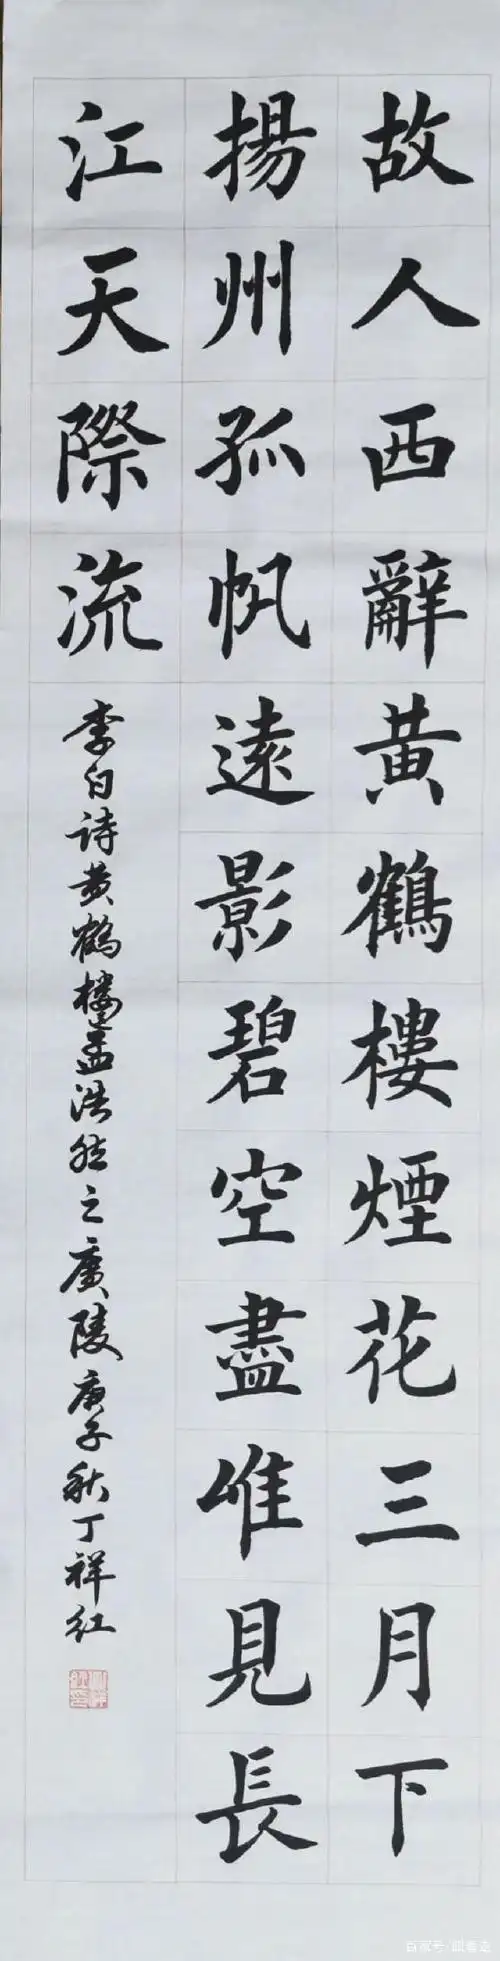 故人西辭黃鶴樓煙花三月下
揚州孤帆遠影碧空盡唯見長
江天際流
李白詩黃鶴樓孟浩然之廣陵庚子秋丁祥红
百家号